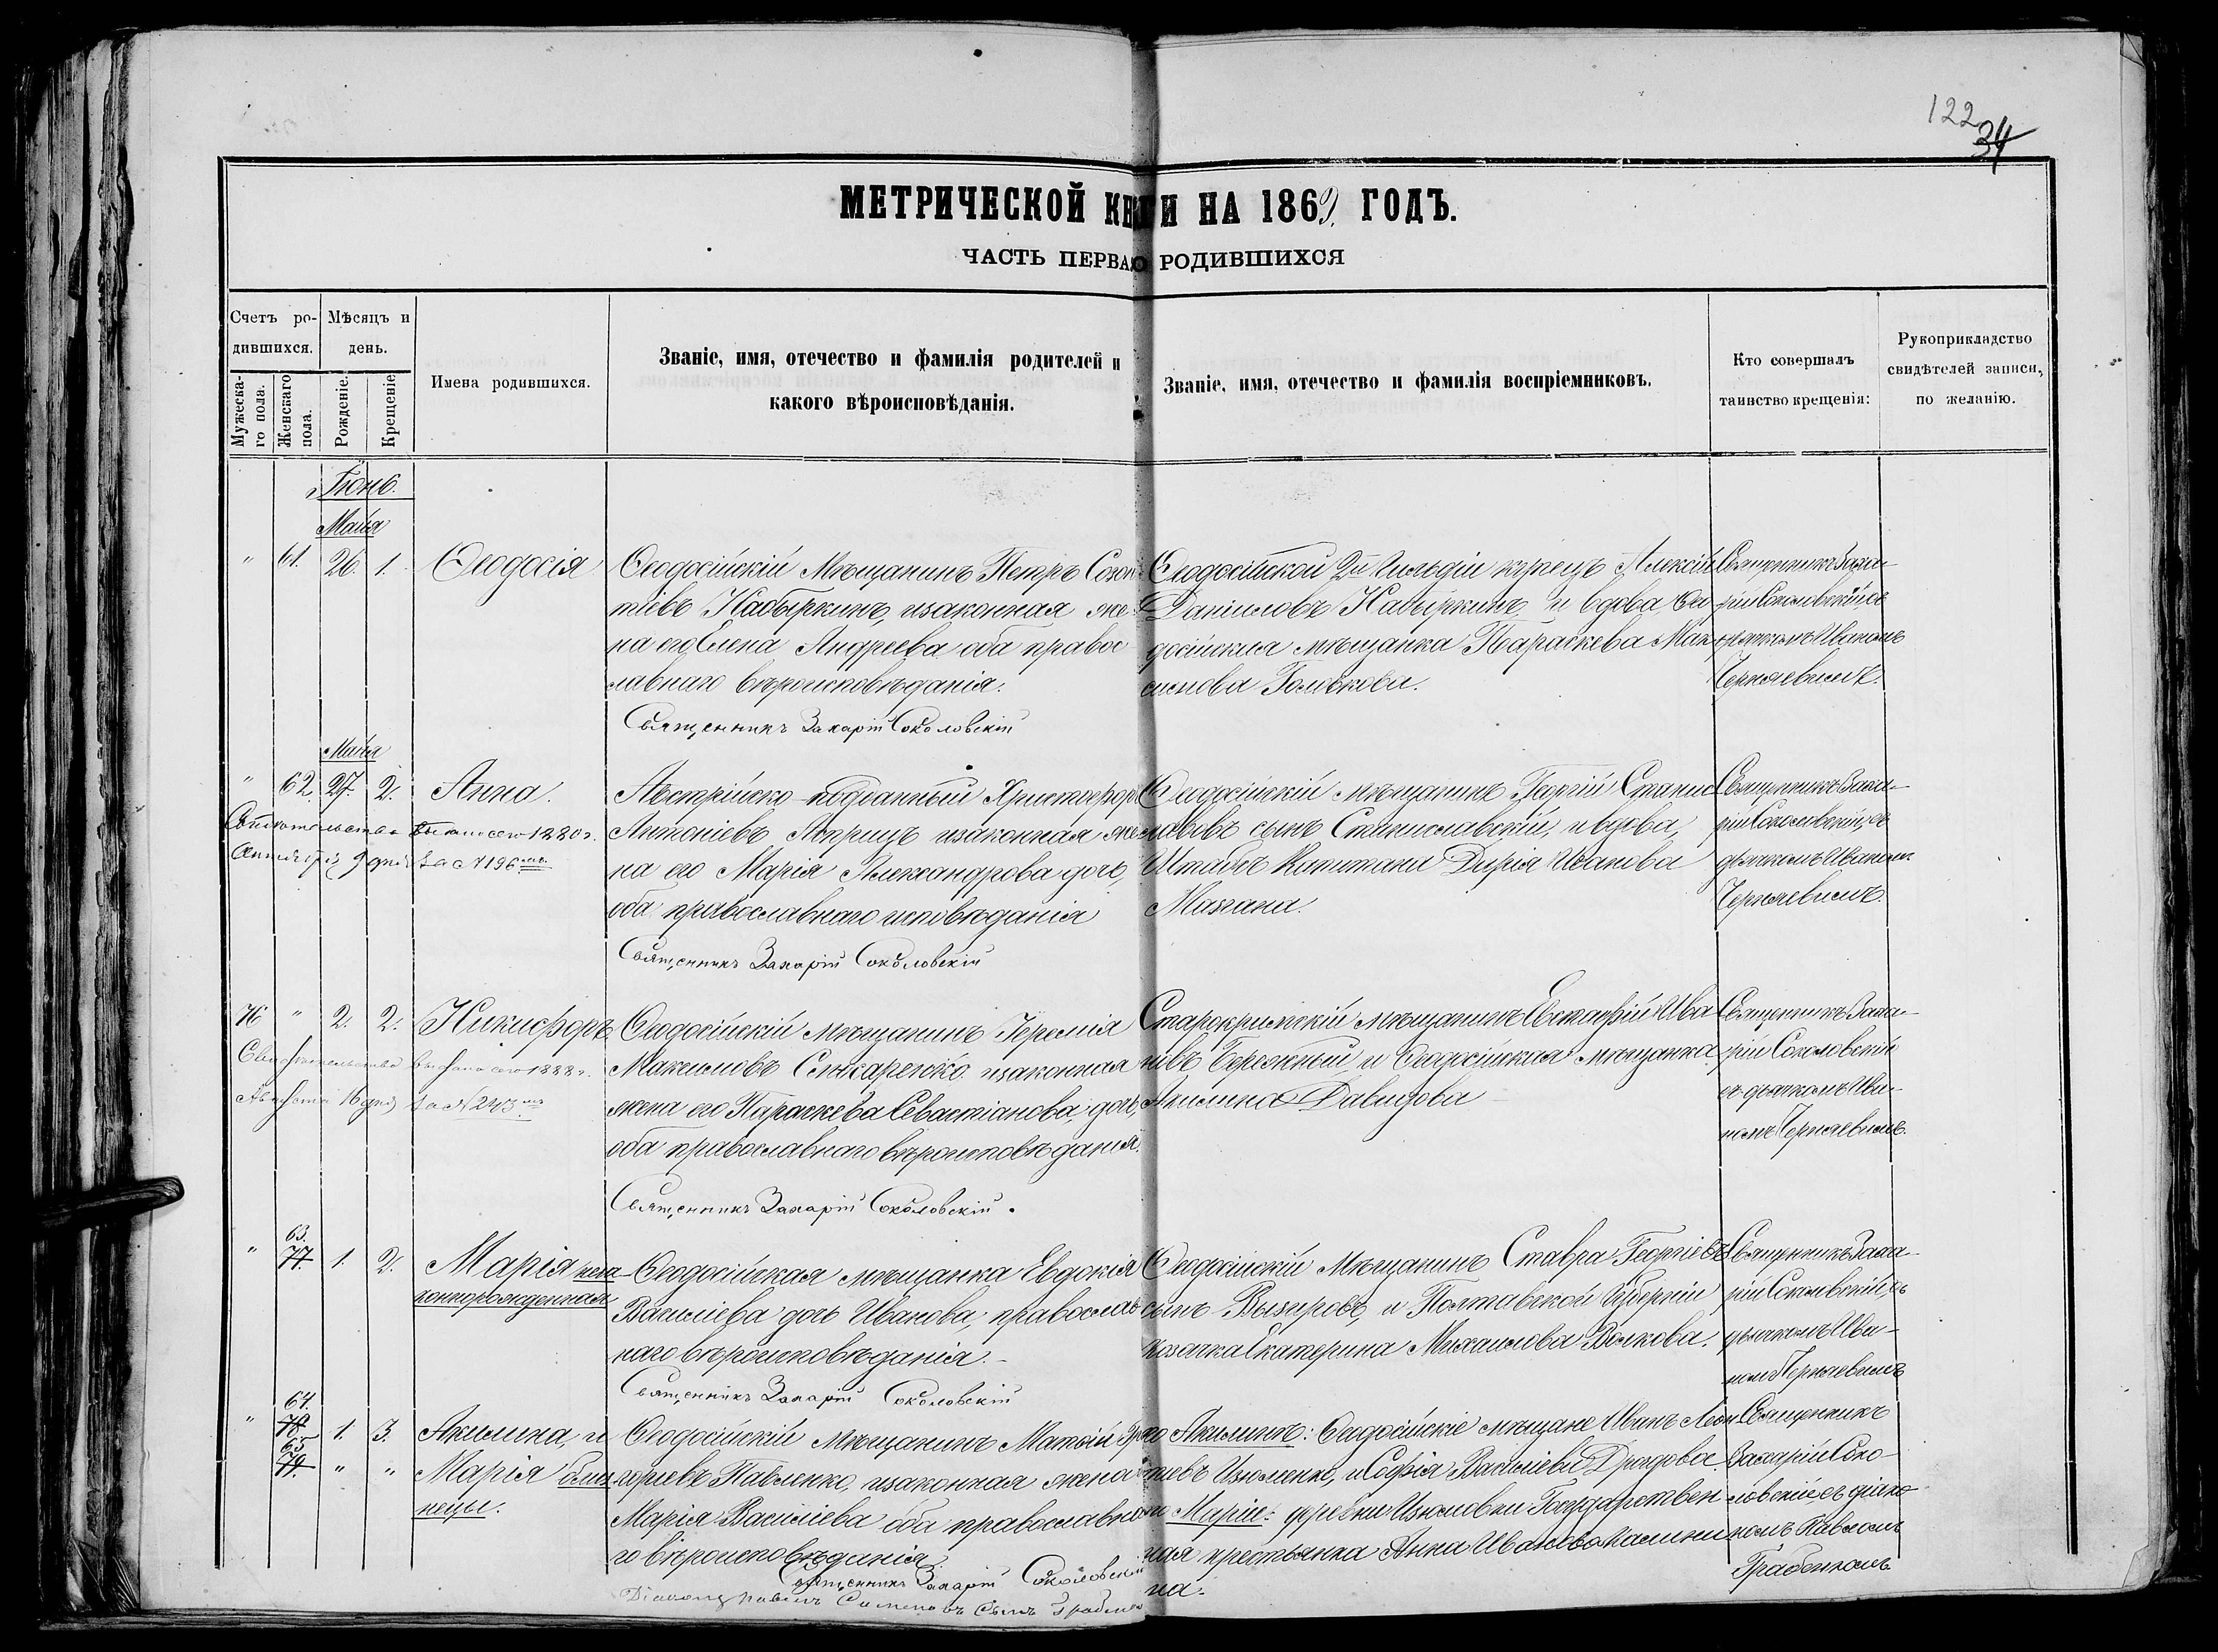 122
34
МЕТРИЧЕСКОЙ КНИГИ НА 1869 ГОДЪ.
ЧАСТЬ ПЕРВАЯ О РОДИВШИХСЯ
Счетъ ро-
дившихся.
Мѣсяцъ и
день.
Мужеска-
го пола.
Женскаго
пола.
Рожденіе.
Крещеніе
Имена родившихся.
Званіе, имя, отечество и фамилія родителей и
какого вѣроисповѣданія.
Званіе, имя, отечество и фамилія воспріемниковъ.
Кто совершалъ
таинство крещенія:
Рукоприкладство
свидѣтелей записи,
по желанію.
Іюнь.
Маія
" 61. 26. 1. Ѳеодосія
Ѳеодосійскій Мѣщанинъ Петръ Созон-
тіевъ Кабыркинъ, изаконная же-
на его Елена Андреева оба право
славнаго вѣроисповѣданія.
Священникъ Захарій Соколовскій
Ѳеодосійской 2й Гильдіи купецъ Алексѣй
Даніиловъ Кабыркинъ и вдова Ѳео
досійская мѣщанка Параскева Мак
симова Голикова.
Священникъ Заха-
рій Соколовскій, съ
дьячкомъ Иваномъ
Черняевимъ.
Маія
" 62. 27. 2. Анна.
Свидѣтельство выдано сего 1880 г.
9 дня за № 196мъ
Австрійско-подданный Христофоръ
Антоніевъ изаконная же
на его Марія Александрова дочь,
оба православнаго исповѣданія
Священникъ Захарій Соколовскій
Ѳеодосійскій мѣщанинъ Георгій Станис
лавовъ сынъ Станиславскій, и вдова,
Штабсъ Капитана Дарія Иванова
Мазгана.
Священникъ Заха-
рій Соколовскій, съ
дьячкомъ Иваномъ
Черняевимъ.
76 " 2. 2. Никифоръ
Свидѣтельство выдано сего 1888 г.
Августа 16 дня за № 243мъ
Ѳеодосійскій мѣщанинъ Іеремія
Максимовъ Слюсаренко изаконная
жена его Параскева Севастіанова дочь,
оба православнаго вѣроисповѣданія.
Священникъ Захарій Соколовскій.
Старокримскій мѣщанинъ Евстафій Ива
новъ Бережный, и Ѳеодосійская мѣщанка
Акилина Давидова
Священникъ Заха-
рій Соколовскій
съ дьячкомъ Ива-
номъ Черняевимъ.
63.
" 77. 1. 2. Марія неза-
коннорожденная
Ѳеодосійская мѣщанка Евдокія
Василіева дочь Иванова, православ
наго вѣроисповѣданія.
Священникъ Захарій Соколовскій
Ѳеодосійскій Мѣщанинъ Ставра Георгіевъ
сынъ Вызировъ, и Полтавской Губерніи
козачка Екатерина Михаилова Волкова.
Священникъ Заха-
рій Соколовскій, съ
дьячкомъ Ива-
номъ Черняевимъ
64.
" 78 1. 3. Акилина, и
65
79. " " Марія близ-
нецы.
Ѳеодосійскій Мѣщанинъ Матѳій Гри
горіевъ Павленко, изаконная жена
Марія Василіева оба православна
го вѣроисповѣданія.
Священникъ Захарій Соколовскій
Діаконъ Павелъ Симеоновъ сынъ
Акилинѣ: Ѳеодосійскіе мѣщане Иванъ Леон
тіевъ Изюменко, и Софія Василіева Дроздова.
Маріи: деревни Изюмовки Государствен
ная крестьянка Анна Иванова Калини
на.
Священникъ
Захарій Соко-
ловскій съ діако-
номъ Павломъ
Грабенкомъ